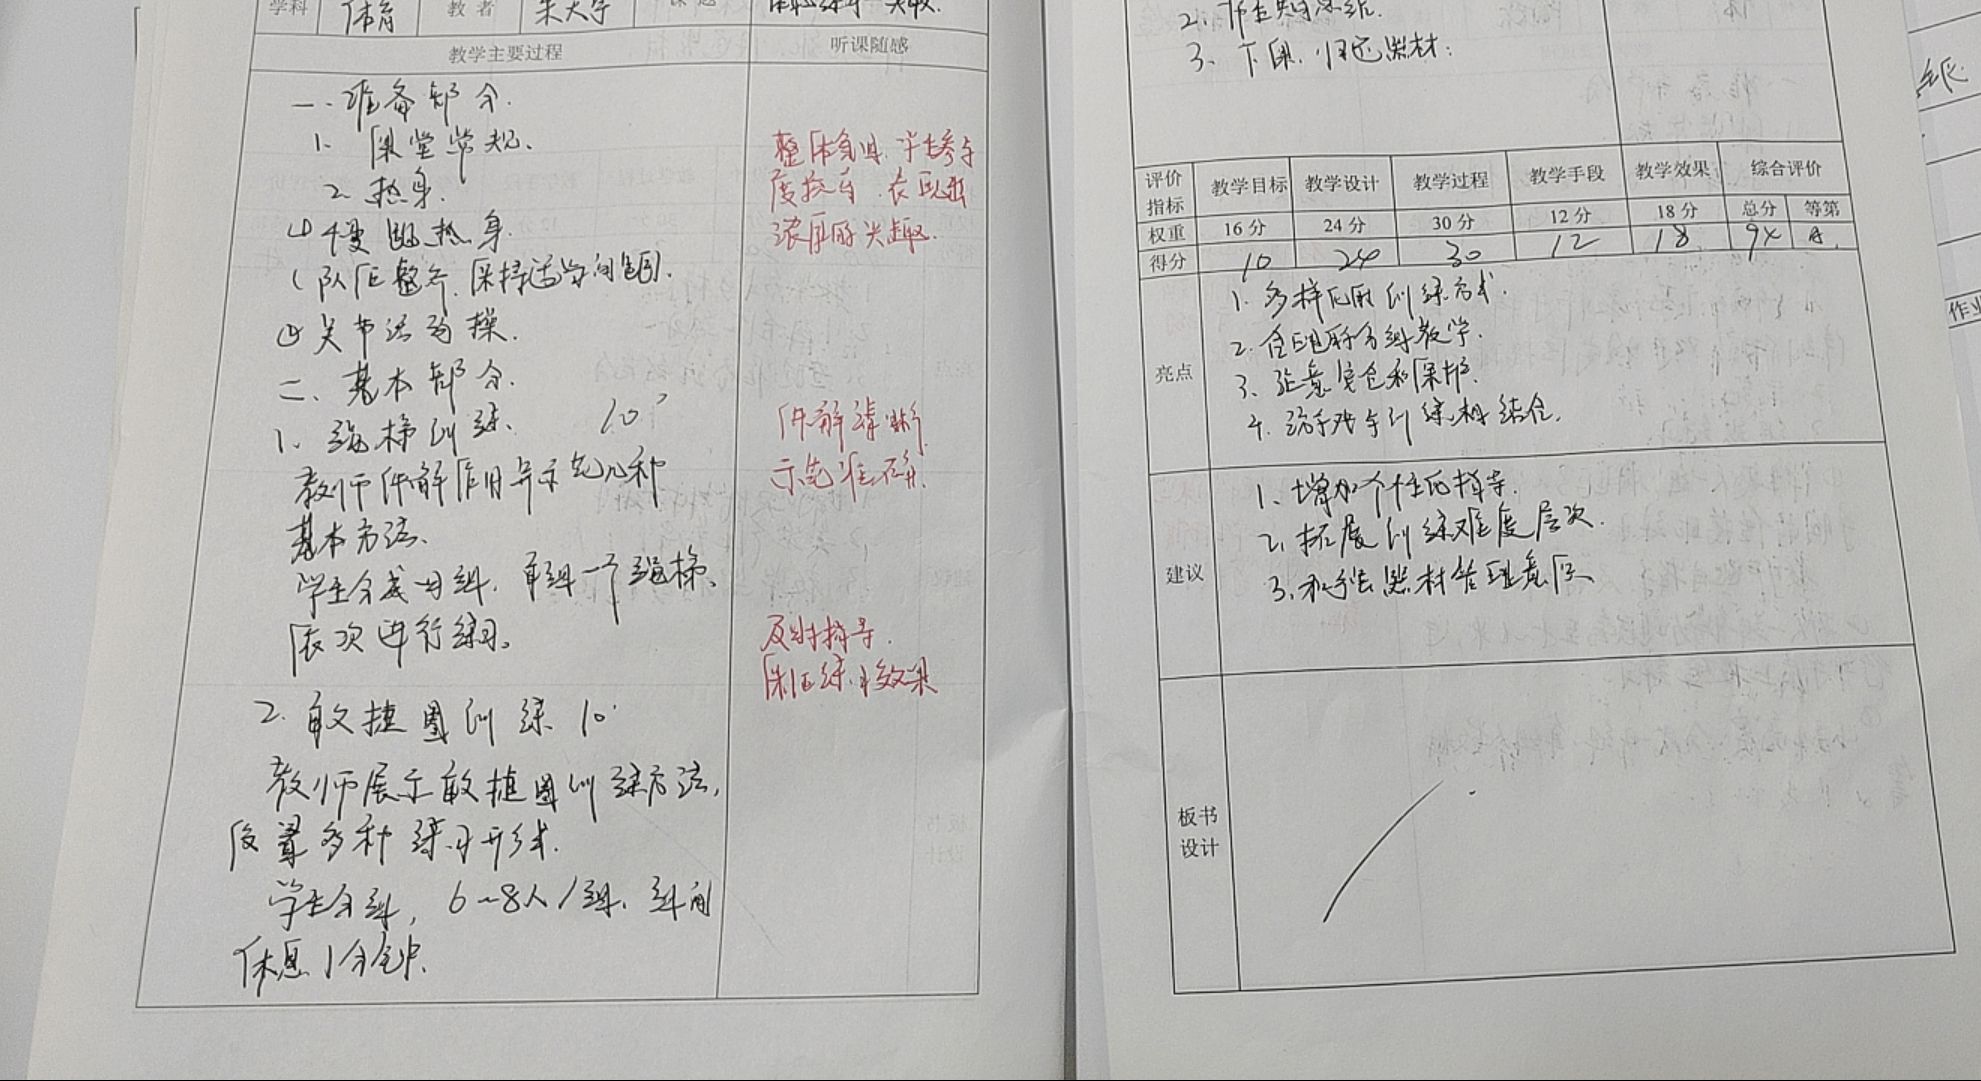 学科 体育 教者 朱大宇 课题
教学主要过程 听课随感
一、准备部分.
1. 课堂常规.
2. 热身.
① 慢跑热身.
(队伍整齐,保持适当间距).
② 关节活动操.
二、基本部分.
1. 绳梯训练、 10'
教师讲解作用并示范几种
基本方法、
学生分成四组,每组一个绳梯、
依次进行练习。
2. 敏捷圈训练 10'
教师展示敏捷圈训练方法,
设置多种练习形式.
学生分组, 6~8人/组、组间
休息1分钟.
整体.学生参与
度较高.表现出
浓厚的兴趣.
讲解清晰
示范准确.
及时指导.
保证练习效果
3. 下课.归还器材:
评价指标 教学目标 教学设计 教学过程 教学手段 教学效果 综合评价
权重 16分 24分 30分 12分 18分 总分 等第
得分 10 24 30 12 18 9 A.
亮点
1. 多样化的训练方式.
2. 合理的分组教学.
3. 注意安全和保护.
4. 游戏与训练相结合.
建议
1. 增加个性化指导.
2. 拓展训练难度层次.
3. 器材管理意识
板书设计
作业